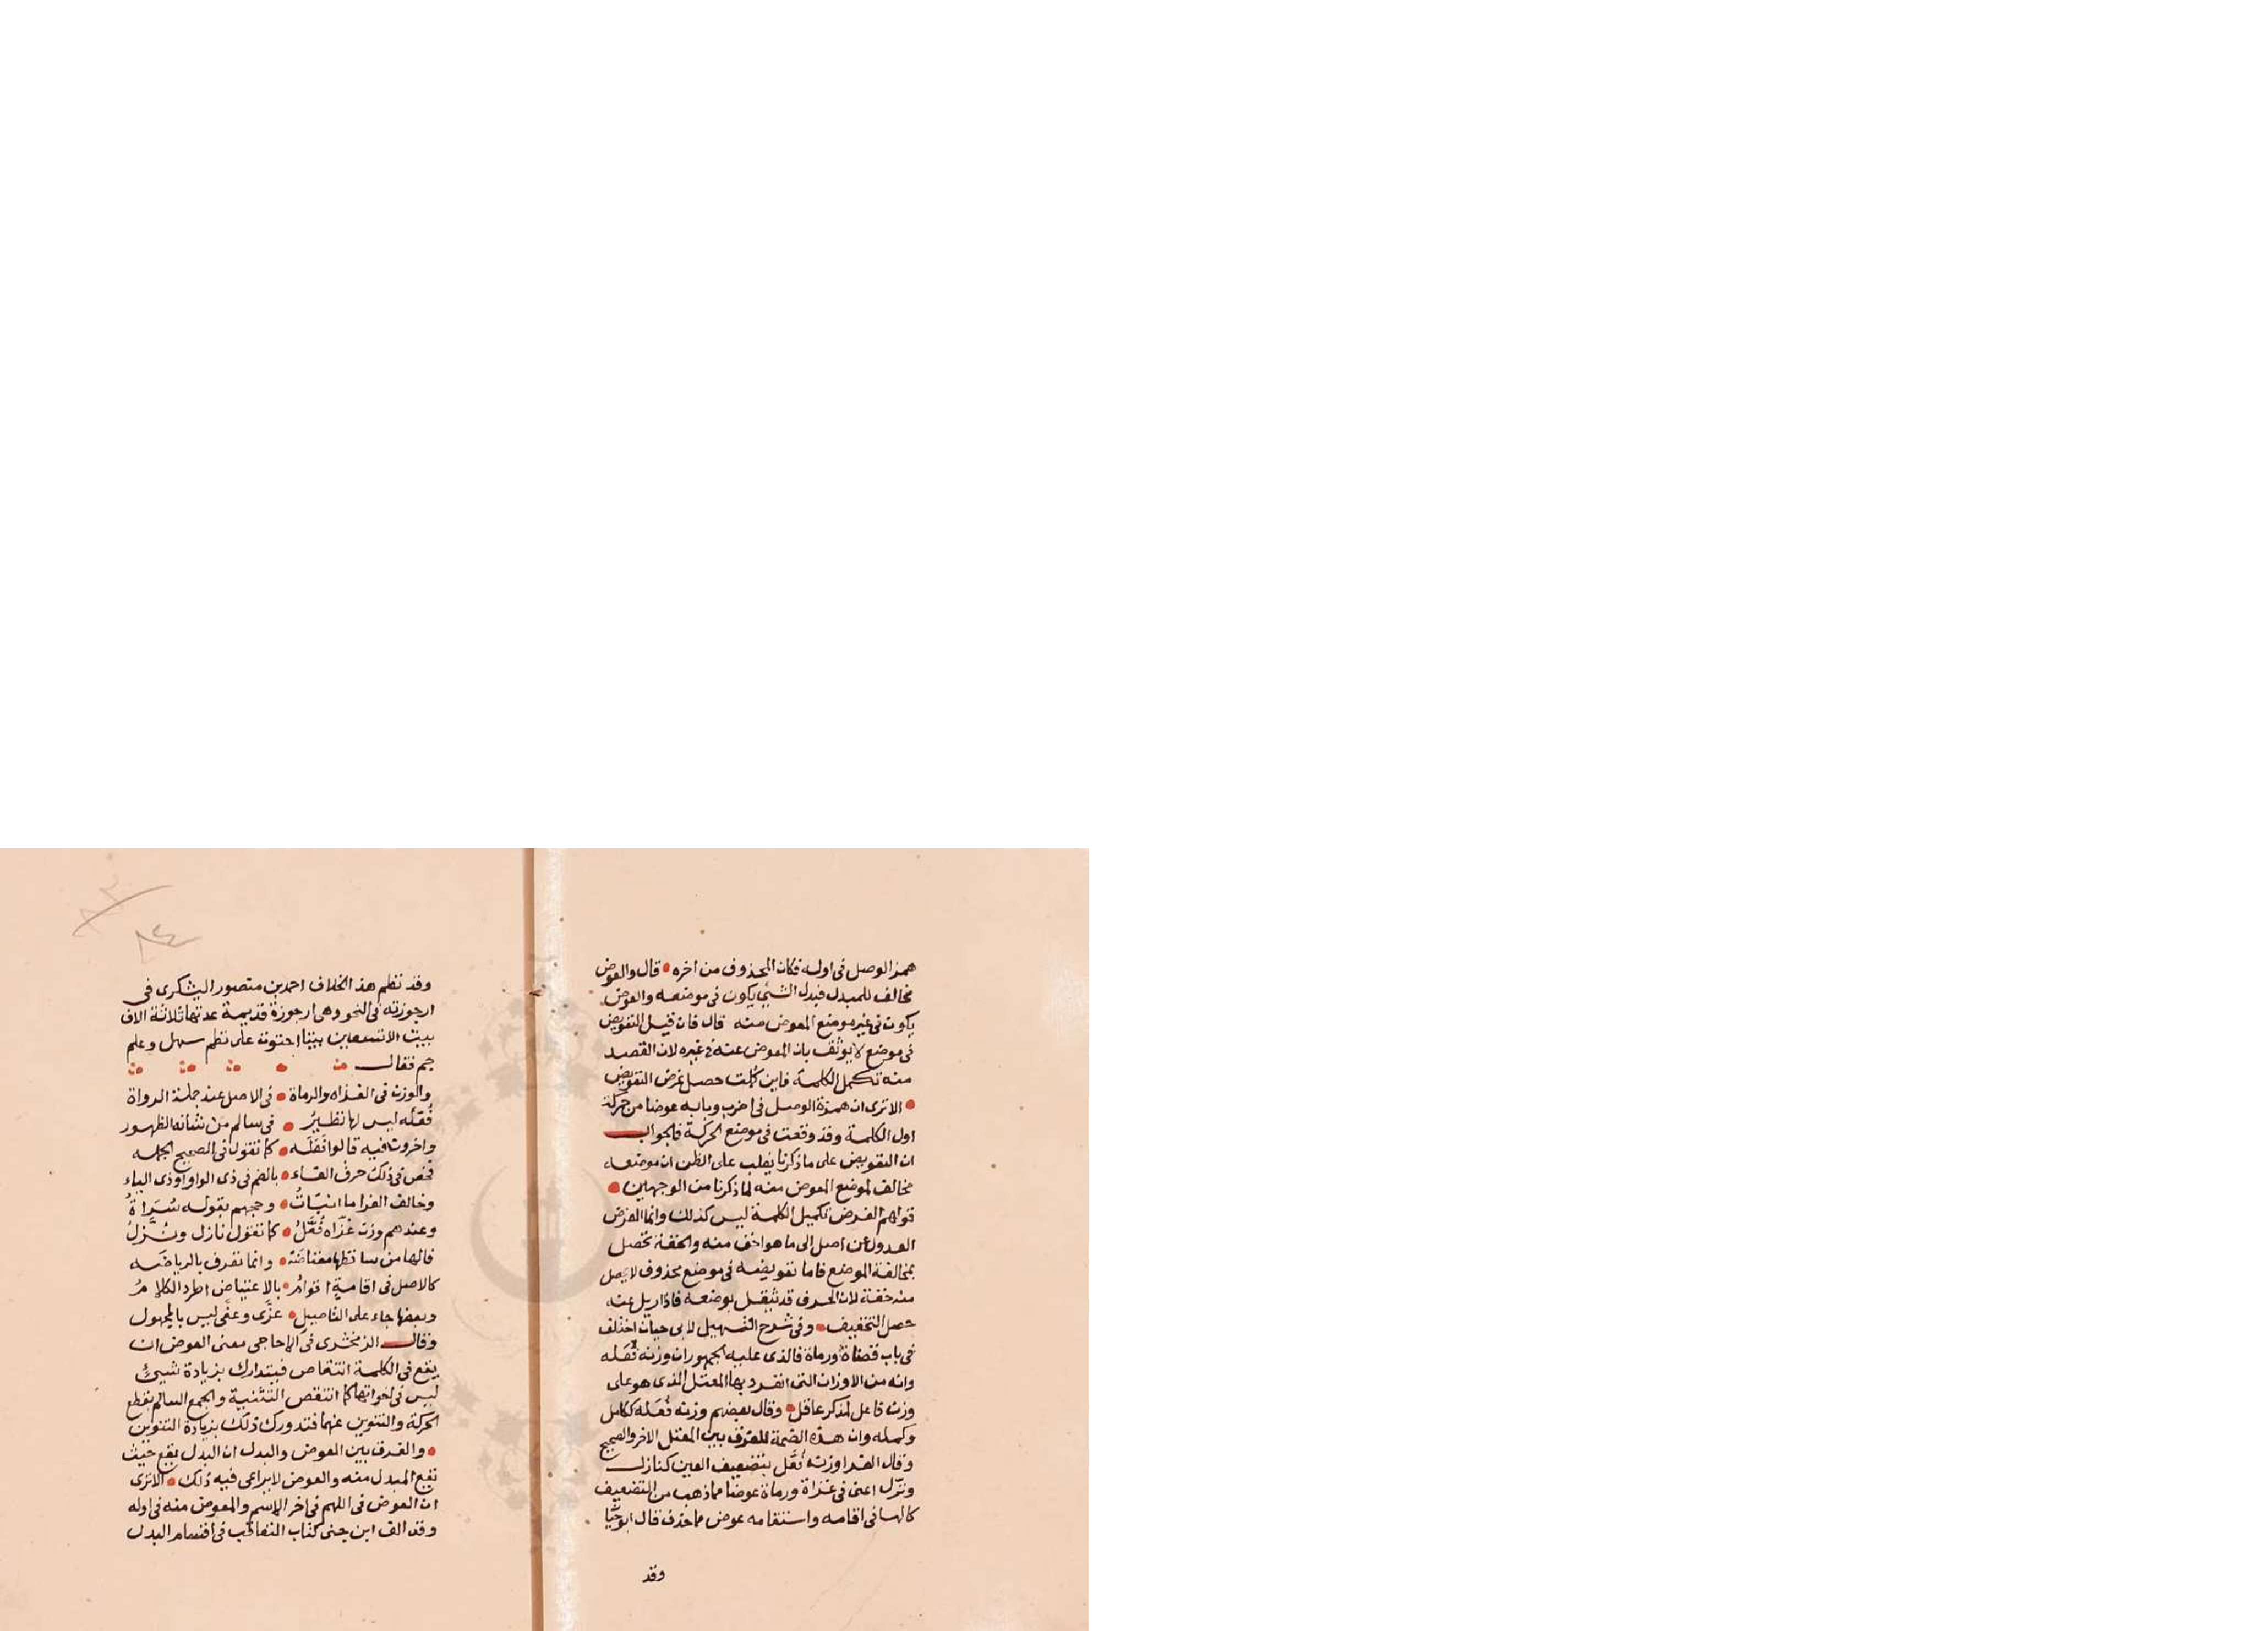 همز الوصل فى اوله فكان المحذوف من اخره • قال والعوض
مخالف للمبدل فبدل الشئ يكون فى موضعه والعوض
يكون فى غير موضع المعوض منه قال فان قيل التعويض
فى موضع لا يوثق بان المعوض عنه فى غيره لان القصد
منه تكمل الكلمة فاين كملت حصل غرض التعويض
• الا ترى ان همزة الوصل فى اضرب وبابه عوضا من حركة
اول الكلمة وقد وقعت فى موضع الحركة فالجواب
ان التعويض على ما ذكرنا يغلب على الظن ان موضعه
مخالف لموضع المعوض منه لما ذكرنا من الوجهين •
قولهم الغرض تكميل الكلمة ليس كذلك وانما الغرض
العدول عن اصل الى ما هو اخف منه والخفة تحصل
بمخالفة الموضع فاما تعويضه فى موضع محذوف لا يحصل
منه خفة لان الحرف قد ثقل بوضعه فاذا ازيل عنه
حصل التخفيف • وفى شرح التسهيل لابى حيان اختلف
فى باب قضاة ورماة فالذى عليه الجمهور ان وزنه فعله
وانه من الاوزان التى انفرد بها المعتل الذى هو على
وزن فاعل لمذكر عاقل • وقال بعضهم وزنه فعله ككامل
وكمله وان هذه الضمة للفرق بين المعتل الاخر والصحيح
وقال الفرا وزنه فُعَّل بتضعيف العين كنازل
ونزّل اعنى فى غزاة ورماة عوضا مما ذهب من التضعيف
كالها فى اقامه واستقامه عوض مما حذف قال ابو حيا
وقد
وقد نظم هذ الخلاف احمد بن منصور اليشكرى فى
ارجوزته فى النحو وهى ارجوزة قديمة عدتها ثلاثة الاف
بيت الا تسعين بيتا احتوت على نظم سهل وعلم
جم فقال
والوزن فى الغزاه والرماة • فى الاصل عند جملة الرواة
فُعَلَه ليس لها نظيرُ • فى سالم من شانه الظهور
واخرون فيه قالوا فَعَلَه • كما تقول فى الصحيح الجمله
فخص فى ذلك حرف الفاء • بالضم فى ذى الواو او ذى الياء
وخالف الفرا ما انبات • وحجهم بقوله سُرَاةُ
وعندهم وزن غزّاه فُعَّلُ • كما تقول نازل ونُزَّلُ
فالها من ساقطها معتاضَه • وانما تعرف بالرياضه
كالاصل فى اقامةِ اقوامُ • بالاعتياض اطرد الكلامُ
وبعضها جاء على التاصيل • غزّى وعفّى ليس بالمجهول
وقال الزمخشرى فى الاحاجى معنى العوض ان
يقع فى الكلمة انتقاص فيتدارك بزيادة شيئ
ليس فى اخواتها كما انتقص التثنية والجمع السالم بقطع
الحركة والتنوين عنهما فتدورك ذلك بزيادة التنوين
• والفرق بين العوض والبدل ان البدل يقع حيث
تقع المبدل منه والعوض لا يراعى فيه ذلك • الا ترى
ان العوض فى اللهم فى اخر الاسم والمعوض منه فى اوله
وقد الف ابن جنى كتاب التعاقب فى اقسام البدل